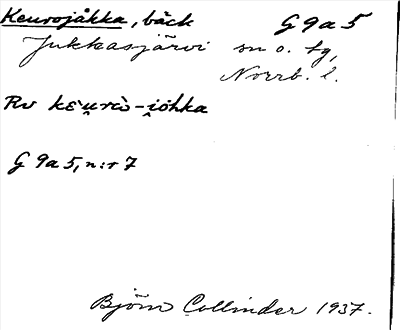 Keurojåkka, bäck G 9 a 5
Jukkasjärvi sn o. tg,
Norrb. l.
Rv kɛu̯rò-i̯öhka
G 9a 5, n:r 7
Björn Collinder 1937.